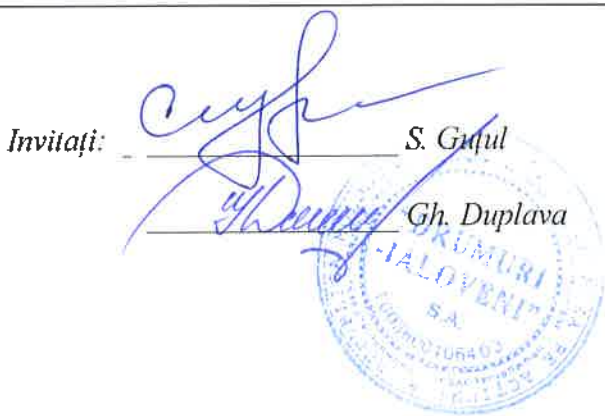 Invitați: S. Guțul
Gh. Duplava
DRUMURI
-IALOVENI"
S.A.